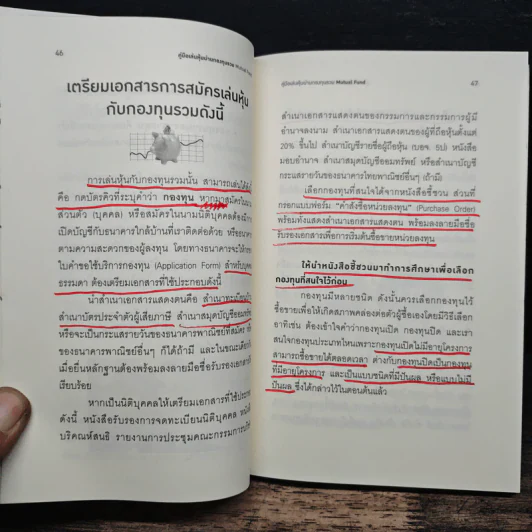 46
คู่มือเล่นหุ้นผ่านกองทุนรวม Mutual Fund
เตรียมเอกสารการสมัครเล่นหุ้น
กับกองทุนรวมดังนี้
การเล่นหุ้นกับกองทุนรวมนั้น สามารถเล่นได้
คือ กดบัตรคิวที่ระบุคำว่า กองทุน หากมาสมัครใน
ส่วนตัว (บุคคล) หรือสมัครในนามนิติบุคคลต้อง
เปิดบัญชีกับธนาคารใกล้บ้านที่เราติดต่อด้วย หรือธนาคาร
ตามความสะดวกของผู้ลงทุน โดยทางธนาคารจะให้
ใบคำขอใช้บริการกองทุน (Application Form) สำหรับบุคคล
ธรรมดา ต้องเตรียมเอกสารที่ใช้ประกอบดังนี้
นำสำเนาเอกสารแสดงตนคือ สำเนาทะเบียนบ้าน
สำเนาบัตรประจำตัวผู้เสียภาษี สำเนาสมุดบัญชีออมทรัพย์
หรือจะเป็นกระแสรายวันของธนาคารพาณิชย์ที่สมัคร หรือ
ของธนาคารพาณิชย์อื่นๆ ก็ได้ถ้ามี และในขณะเดียวกัน
เมื่อยื่นหลักฐานต้องพร้อมลงลายมือชื่อรับรองเอกสาร
เรียบร้อย
หากเป็นนิติบุคคลให้เตรียมเอกสารที่ใช้ประกอบ
ดังนี้ หนังสือรับรองการจดทะเบียนนิติบุคคล หนังสือ
บริคณห์สนธิ รายงานการประชุมคณะกรรมการบริษัท
คู่มือเล่นหุ้นผ่านกองทุนรวม Mutual Fund
47
สำเนาเอกสารแสดงตนของกรรมการและกรรมการผู้มี
อำนาจลงนาม สำเนาเอกสารแสดงตนของผู้ที่ถือหุ้นตั้งแต่
20% ขึ้นไป สำเนาบัญชีรายชื่อผู้ถือหุ้น (บอจ. 5ป) หนังสือ
มอบอำนาจ สำเนาสมุดบัญชีออมทรัพย์ หรือสำเนาบัญชี
กระแสรายวันของธนาคารไทยพาณิชย์อื่นๆ (ถ้ามี)
เลือกกองทุนที่สนใจได้จากหนังสือชี้ชวน ส่วนที่
กรอกแบบฟอร์ม “คำสั่งซื้อหน่วยลงทุน” (Purchase Order)
พร้อมทั้งแสดงสำเนาเอกสารแสดงตน พร้อมลงลายมือชื่อ
รับรองเอกสารเพื่อการเริ่มต้นซื้อขายหน่วยลงทุน
ให้นำหนังสือชี้ชวนมาทำการศึกษาเพื่อเลือก
กองทุนที่สนใจไว้ก่อน
กองทุนมีหลายชนิด ดังนั้นควรเลือกกองทุนไว้
ซื้อขายเพื่อให้เกิดสภาพคล่องต่อตัวผู้ซื้อเองโดยมีวิธีเลือก
อาทิเช่น ต้องเข้าใจคำว่ากองทุนเปิด กองทุนปิด และเรา
สนใจกองทุนประเภทไหนเพราะกองทุนเปิดไม่มีอายุโครงการ
สามารถซื้อขายได้ตลอดเวลา ต่างกับกองทุนปิดเป็นกองทุน
ที่มีอายุโครงการ และเป็นแบบชนิดที่มีปันผล หรือแบบไม่มี
ปันผล ซึ่งได้กล่าวไว้ในตอนต้นแล้ว